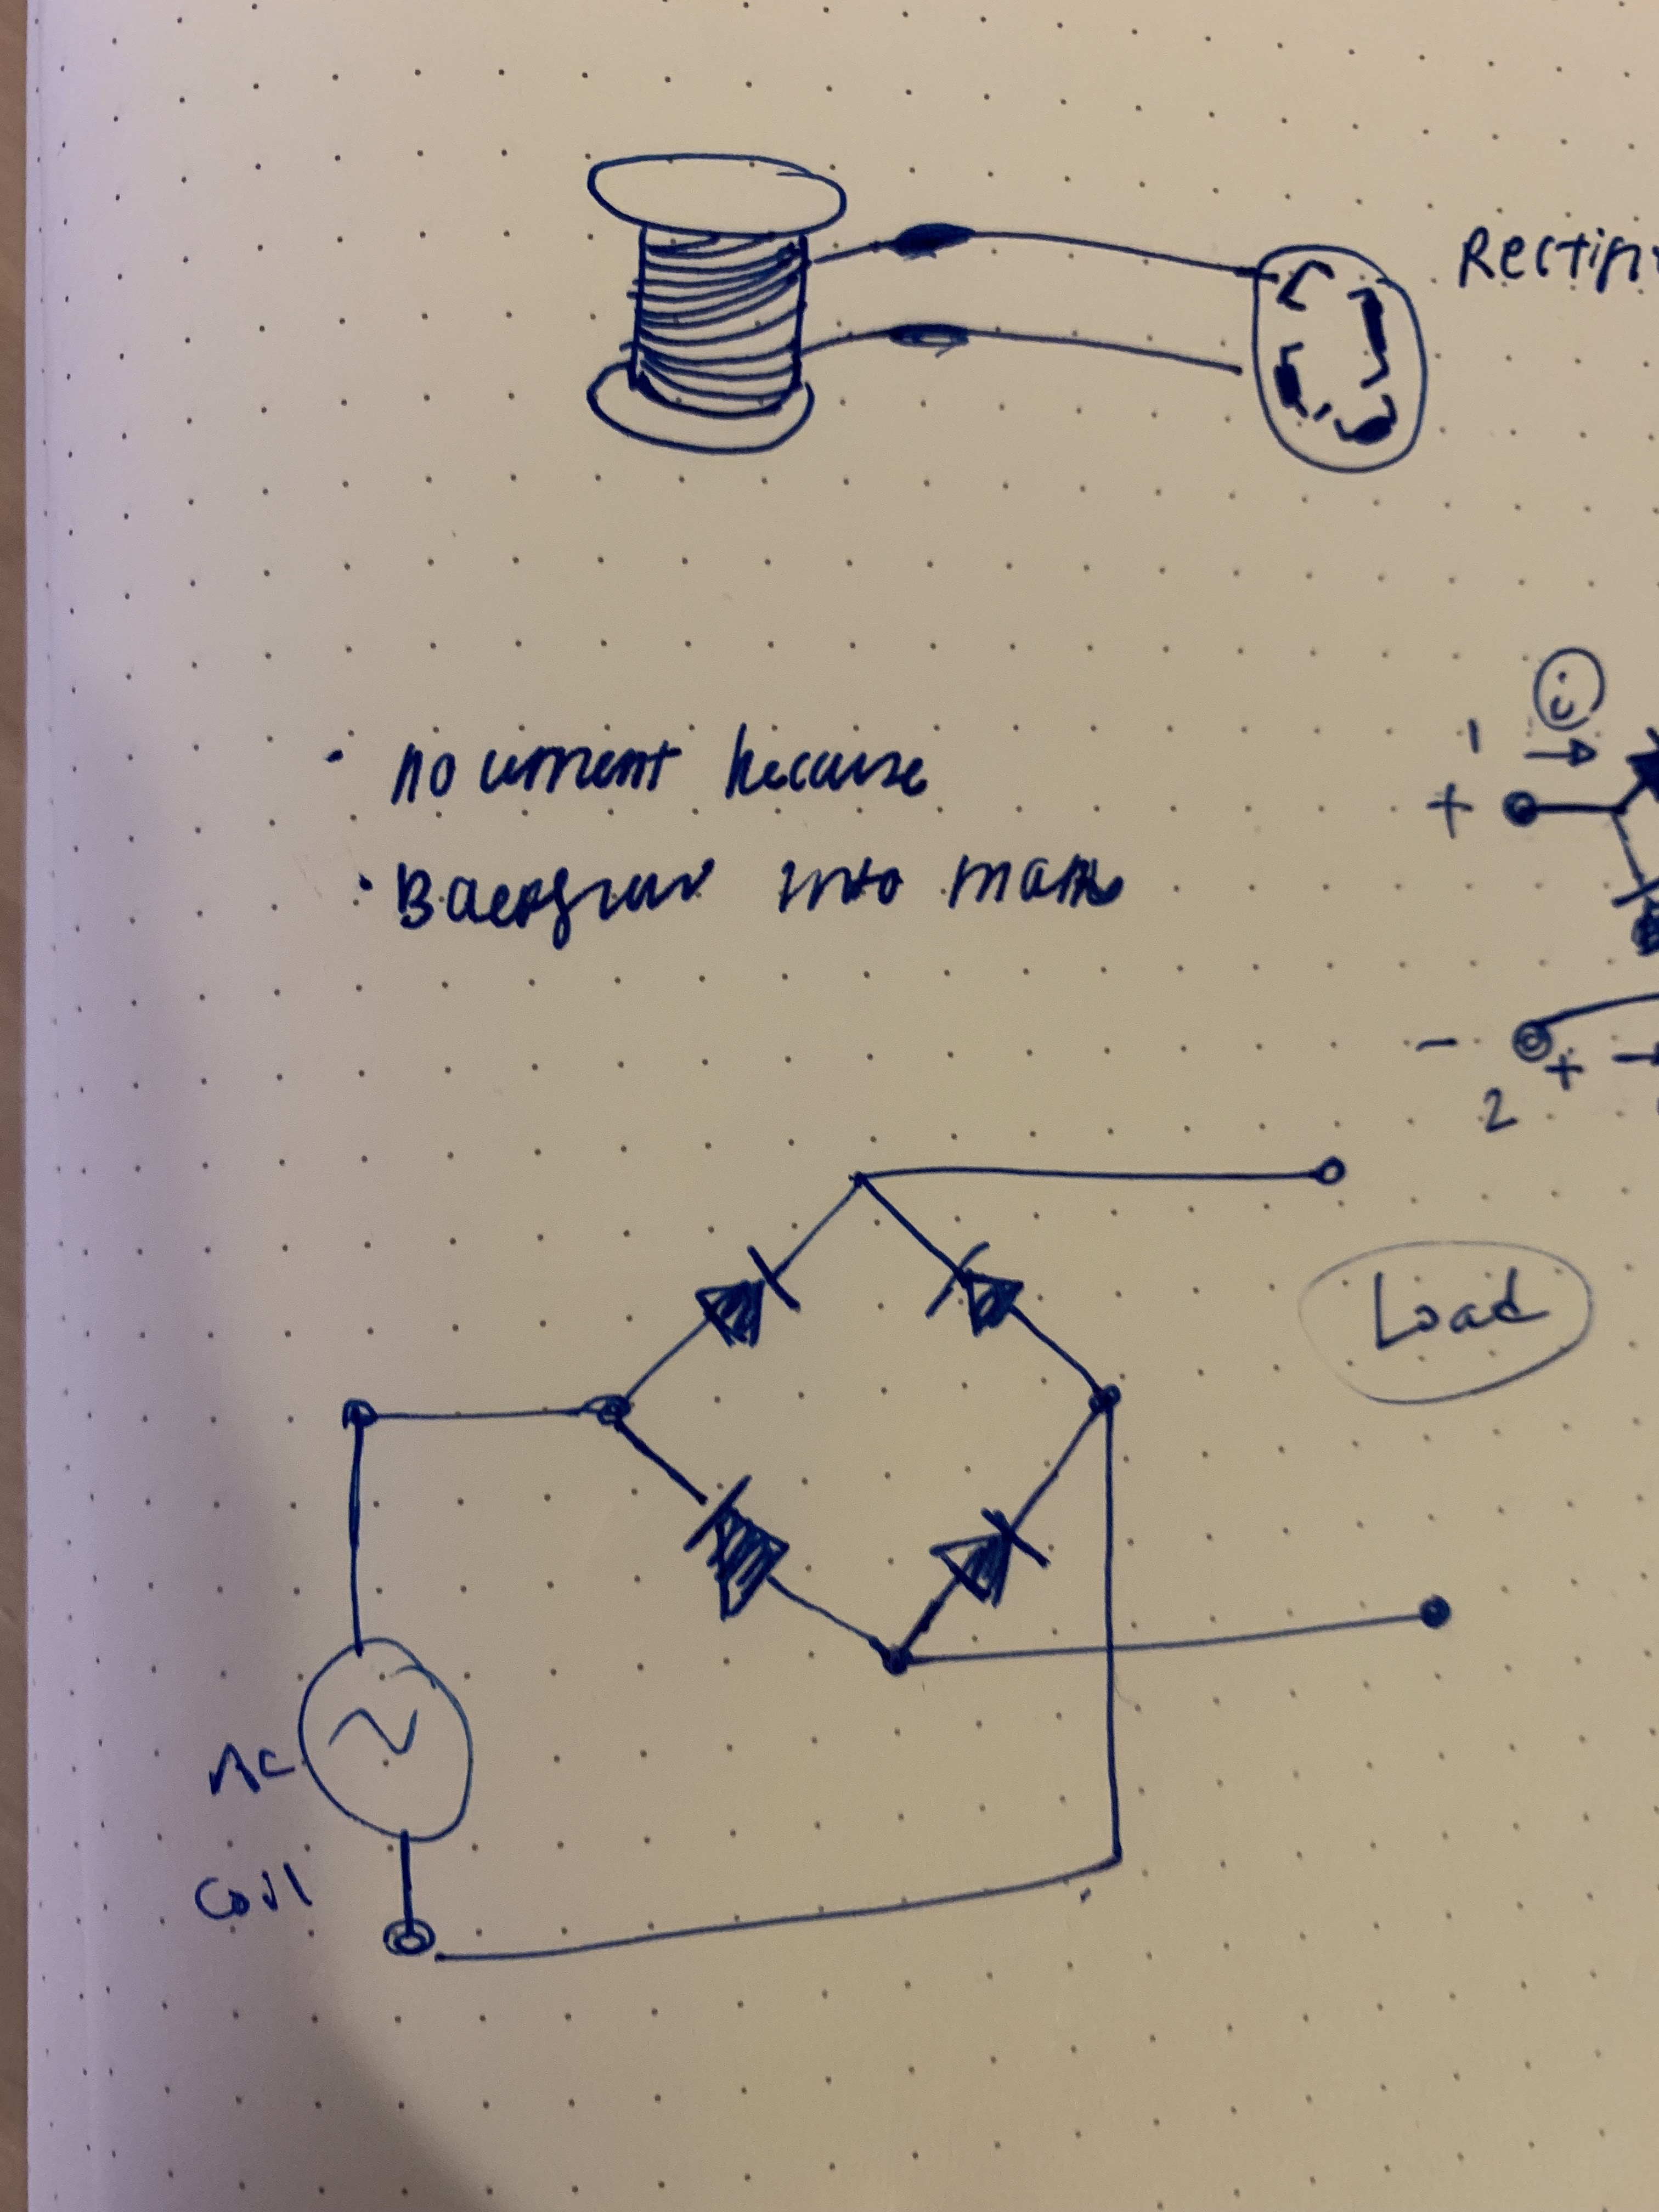 Rectifi
no current because
into
1
+
-
+
2
Load
AC
Coil